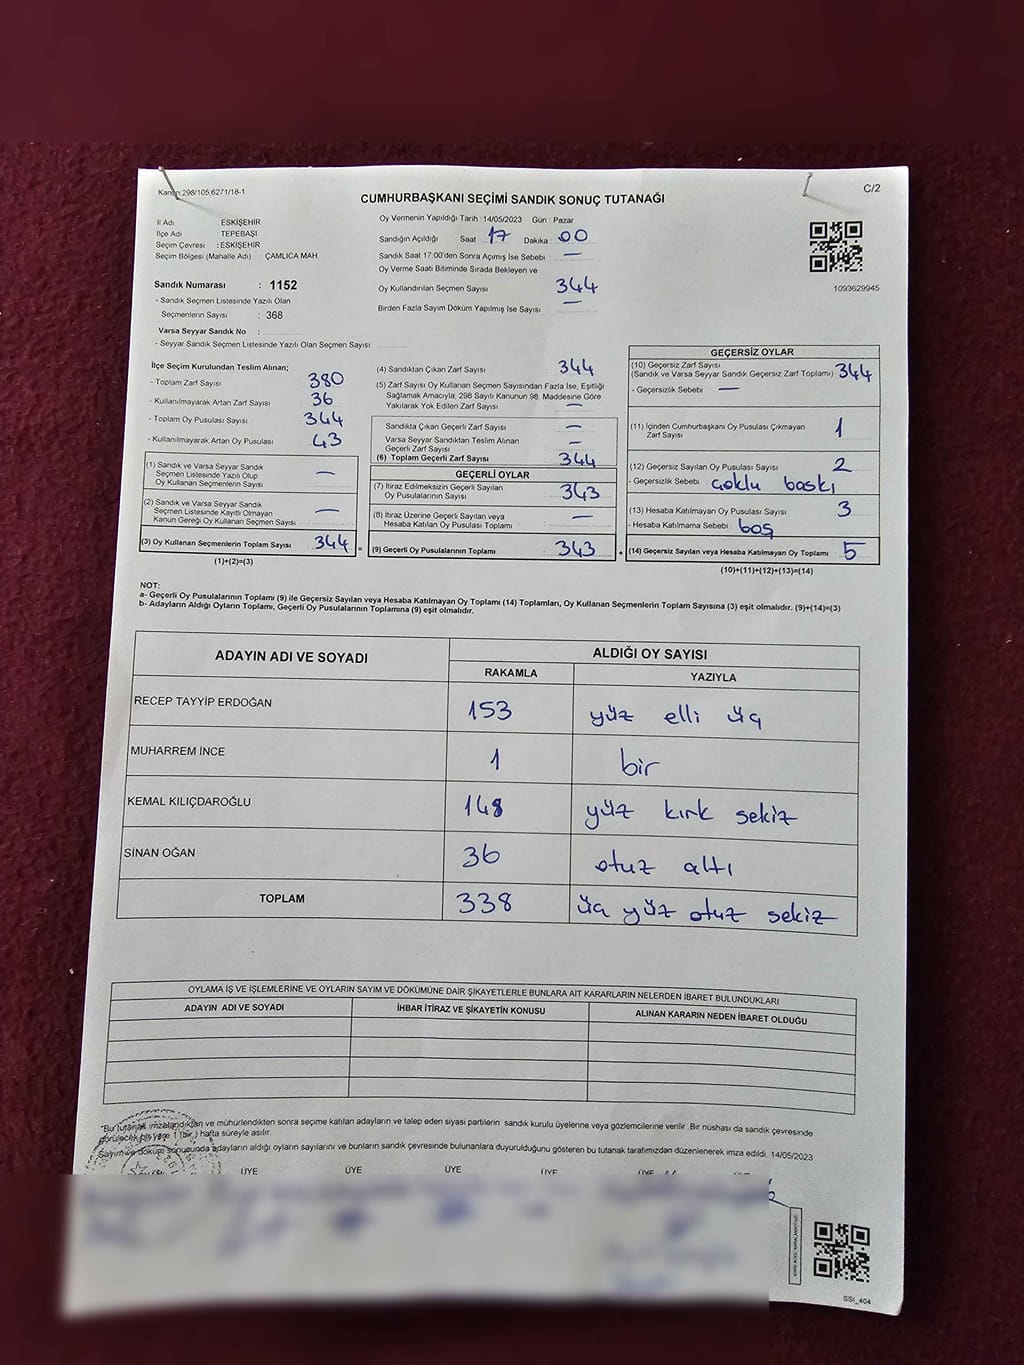 Kanun:298/105,6271/18-1
C/2
CUMHURBAŞKANI SEÇİMİ SANDIK SONUÇ TUTANAĞI
İl Adı : ESKİŞEHİR
İlçe Adı : TEPEBAŞI
Seçim Çevresi : ESKİŞEHİR
Seçim Bölgesi (Mahalle Adı) : ÇAMLICA MAH.
Sandık Numarası : 1152
- Sandık Seçmen Listesinde Yazılı Olan
Seçmenlerin Sayısı : 368
Varsa Seyyar Sandık No :
- Seyyar Sandık Seçmen Listesinde Yazılı Olan Seçmen Sayısı:
Oy Vermenin Yapıldığı Tarih :14/05/2023 Gün : Pazar
Sandığın Açıldığı Saat 17 Dakika : 00
Sandık Saat 17.00'den Sonra Açımış İse Sebebi : —
Oy Verme Saati Bitiminde Sırada Bekleyen ve
Oy Kullandırılan Seçmen Sayısı 344
Birden Fazla Sayım Döküm Yapılmış İse Sayısı : —
1093629945
İlçe Seçim Kurulundan Teslim Alınan;
- Toplam Zarf Sayısı 380
- Kullanılmayarak Artan Zarf Sayısı : 36
- Toplam Oy Pusulası Sayısı : 344
- Kullanılmayarak Artan Oy Pusulası : 43
(1) Sandık ve Varsa Seyyar Sandık
Seçmen Listesinde Yazılı Olup
Oy Kullanan Seçmenlerin Sayısı : —
(2) Sandık ve Varsa Seyyar Sandık
Seçmen Listesinde Kayıtlı Olmayan
Kanun Gereği Oy Kullanan Seçmen Sayısı : —
(3) Oy Kullanan Seçmenlerin Toplam Sayısı : 344 =
(1)+(2)=(3)
(4) Sandıktan Çıkan Zarf Sayısı : 344
(5) Zarf Sayısı Oy Kullanan Seçmen Sayısından Fazla İse, Eşitliği
Sağlamak Amacıyla; 298 Sayılı Kanunun 98. Maddesine Göre
Yakılarak Yok Edilen Zarf Sayısı : —
Sandıkta Çıkan Geçerli Zarf Sayısı : —
Varsa Seyyar Sandıktan Teslim Alınan
Geçerli Zarf Sayısı : —
(6) Toplam Geçerli Zarf Sayısı : 344
GEÇERLİ OYLAR
(7) İtiraz Edilmeksizin Geçerli Sayılan
Oy Pusulalarının Sayısı : 343
(8) İtiraz Üzerine Geçerli Sayılan veya
Hesaba Katılan Oy Pusulası Toplamı : —
(9) Geçerli Oy Pusulalarının Toplamı : 343 +
GEÇERSİZ OYLAR
(10) Geçersiz Zarf Sayısı
(Sandık ve Varsa Seyyar Sandık Geçersiz Zarf Toplamı) : 344
- Geçersizlik Sebebi : —
(11) İçinden Cumhurbaşkanı Oy Pusulası Çıkmayan
Zarf Sayısı : 1
(12) Geçersiz Sayılan Oy Pusulası Sayısı : 2
- Geçersizlik Sebebi : çoklu baskı
(13) Hesaba Katılmayan Oy Pusulası Sayısı : 3
- Hesaba Katılmama Sebebi : boş
(14) Geçersiz Sayılan veya Hesaba Katılmayan Oy Toplamı : 5
(10)+(11)+(12)+(13)=(14)
NOT:
a- Geçerli Oy Pusulalarının Toplamı (9) ile Geçersiz Sayılan veya Hesaba Katılmayan Oy Toplamı (14) Toplamları, Oy Kullanan Seçmenlerin Toplam Sayısına (3) eşit olmalıdır. (9)+(14)=(3)
b- Adayların Aldığı Oyların Toplamı, Geçerli Oy Pusulalarının Toplamına (9) eşit olmalıdır.
ADAYIN ADI VE SOYADI
ALDIĞI OY SAYISI
RAKAMLA YAZIYLA
RECEP TAYYİP ERDOĞAN 153 yüz elli üç
MUHARREM İNCE 1 bir
KEMAL KILIÇDAROĞLU 148 yüz kırk sekiz
SİNAN OĞAN 36 otuz altı
TOPLAM 338 üç yüz otuz sekiz
OYLAMA İŞ VE İŞLEMLERİNE VE OYLARIN SAYIM VE DÖKÜMÜNE DAİR ŞİKAYETLERLE BUNLARA AİT KARARLARIN NELERDEN İBARET BULUNDUKLARI
ADAYIN ADI VE SOYADI İHBAR İTİRAZ VE ŞİKAYETİN KONUSU ALINAN KARARIN NEDEN İBARET OLDUĞU
"Bu tutanak imzalandıktan ve mühürlendikten sonra seçime katılan adayların ve talep eden siyasi partilerin sandık kurulu üyelerine veya gözlemcilerine verilir .Bir nüshası da sandık çevresinde
görülecek bir yere 1 (bir ) hafta süreyle asılır.
Sayım ve döküm sonucunda adayların aldığı oyların sayılarını ve bunların sandık çevresinde bulunanlara duyurulduğunu gösteren bu tutanak tarafımızdan düzenlenerek imza edildi. 14/05/2023
ÜYE ÜYE ÜYE ÜYE ÜYE ÜYE
SSI_404